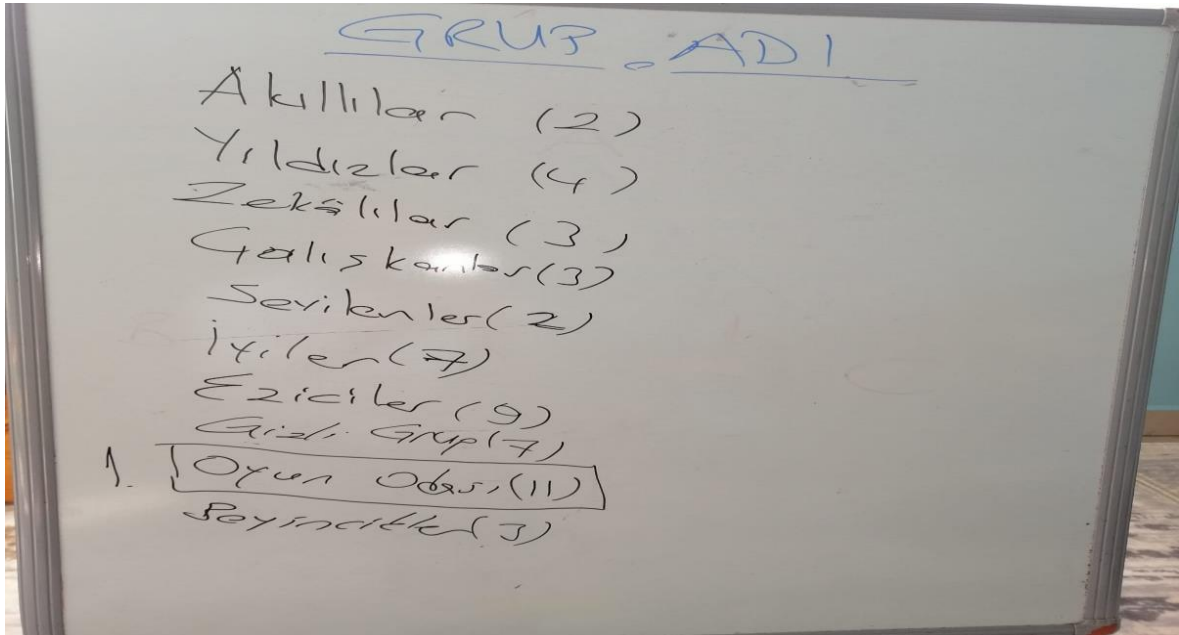 GRUP ADI
Akıllılar (2)
Yıldızlar (4)
Zekâlılar (3)
Çalışkanlar (3)
Sevilenler (2)
İyiler (7)
Eziciler (9)
Gizli Grup (7)
1. Oyun Odası (11)
Beyincikler (3)